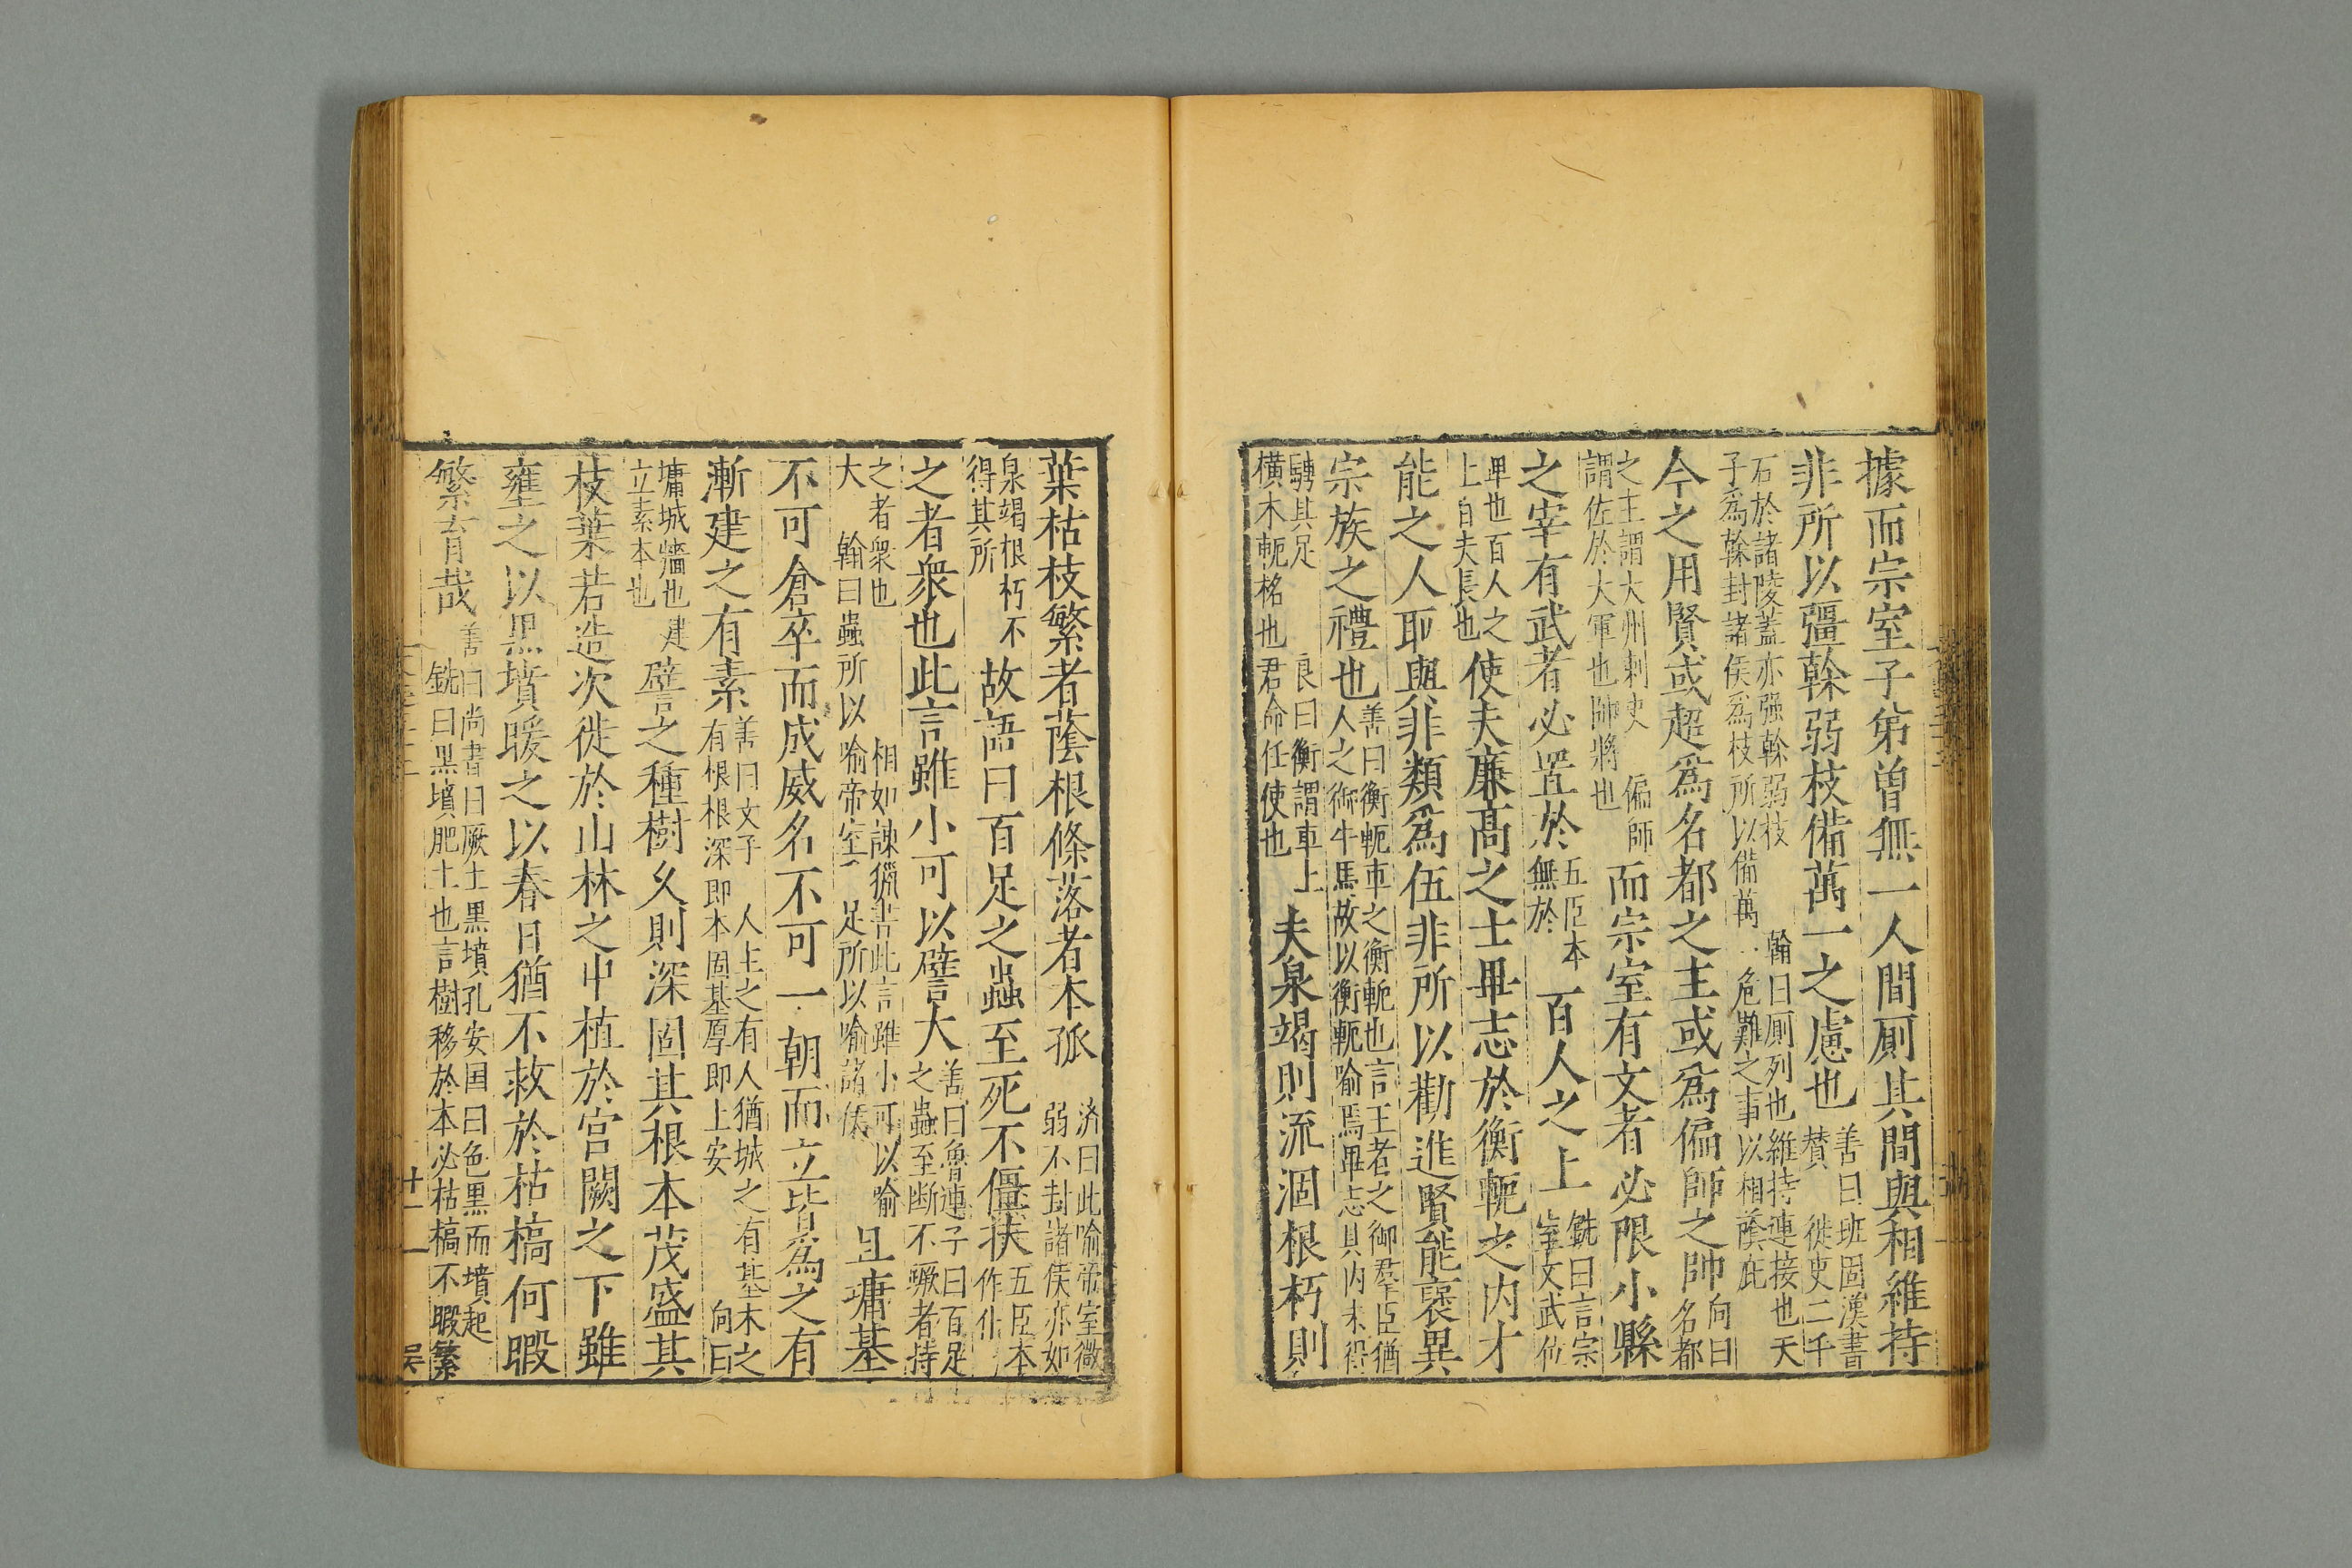 據而宗室子弟曾無一人間厠其間與相維持
非所以彊榦弱枝備萬一之慮也善曰班固漢書
賛徙吏二千
石於諸陵蓋亦强榦弱枝翰曰厠列也維持連接也天
子爲榦封諸侯爲枝所以備萬一危難之事以相蔭庇
今之用賢或超爲名都之主或爲偏師之帥向曰
名都
之主謂大州刺史偏師
謂佐於大軍也帥將也而宗室有文者必限小縣
之宰有武者必置於五臣本
無於百人之上銑曰言宗
室文武位
卑也百人之
上自夫長也使夫廉高之士畢志於衡軛之内才
能之人耻與非類爲伍非所以勸進賢能襃異
宗族之禮也善曰衡軛車之衡軛也言王者之御羣臣猶
人之術牛馬故以衡軛喻焉畢志其内未得
騁其足良曰衡謂車上
横木軛楁也君命任使也夫泉竭則流涸根朽則
葉枯枝繁者蔭根條落者本孤濟曰此喻帝室微
弱不封諸侯亦如
泉竭根朽不
得其所故語曰百足之蟲至死不僵扶五臣本
作仆
之者衆也此言雖小可以譬大善曰魯連子曰百足
之蟲至斷不蹶者持
之者衆也相如諫獵書此言雖小可以喻
大翰曰蟲所以喻帝室足所以喻諸侯且墉基
不可倉卒而成威名不可一朝而立皆爲之有
漸建之有素善曰文子人主之有人猶城之有基木之
有根根深即本固基厚即上安向曰
墉城牆也建
立素本也譬之種樹久則深固其根本茂盛其
枝葉若造次徙於山林之中植於宫闕之下雖
壅之以黒墳暖之以春日猶不救於枯槁何暇
繁育哉善曰尚書曰厥土黒墳孔安国曰色黒而墳起
銑曰黒墳肥土也言樹移於本必枯槁不暇繁
十一
吴